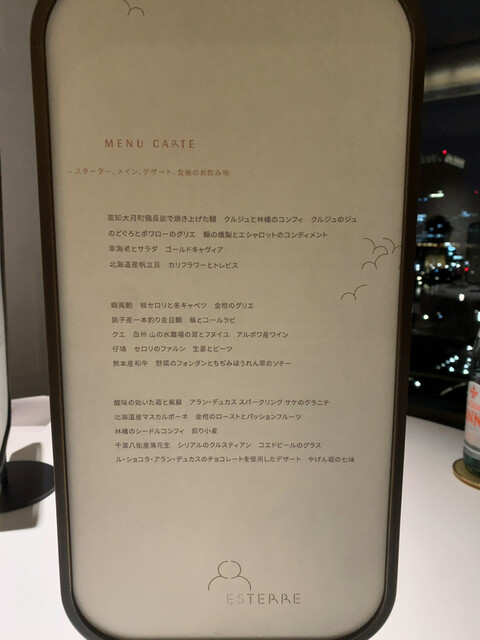 MENU CARTE
– スターター、メイン、デザート、食後のお飲み物
高知大月町備長炭で焼き上げた鰻　クルジュと林檎のコンフィ　クルジュのジュ
のどぐろとポワローのグリエ　鰤の燻製とエシャロットのコンディメント
車海老とサラダ　ゴールドキャヴィア
北海道産帆立貝　カリフラワーとトレビス
蝦夷鮑　根セロリと冬キャベツ　金柑のグリエ
銚子産一本釣り金目鯛　蕪とコールラビ
クエ　白州 山の水農場の茸とフヌイユ　アルボワ産ワイン
仔鳩　セロリのファルシ　生姜とビーツ
熊本産和牛　野菜のフォンダンとちぢみほうれん草のソテー
酸味の効いた苺と紫蘇　アラン・デュカス スパークリング サケのグラニテ
北海道産マスカルポーネ　金柑のローストとパッションフルーツ
林檎のシードルコンフィ　煎り小麦
千葉八街産落花生　シリアルのクルスティアン　コエドビールのグラス
ル・ショコラ・アラン・デュカスのチョコレートを使用したデザート　やげん堀の七味
ESTERRE